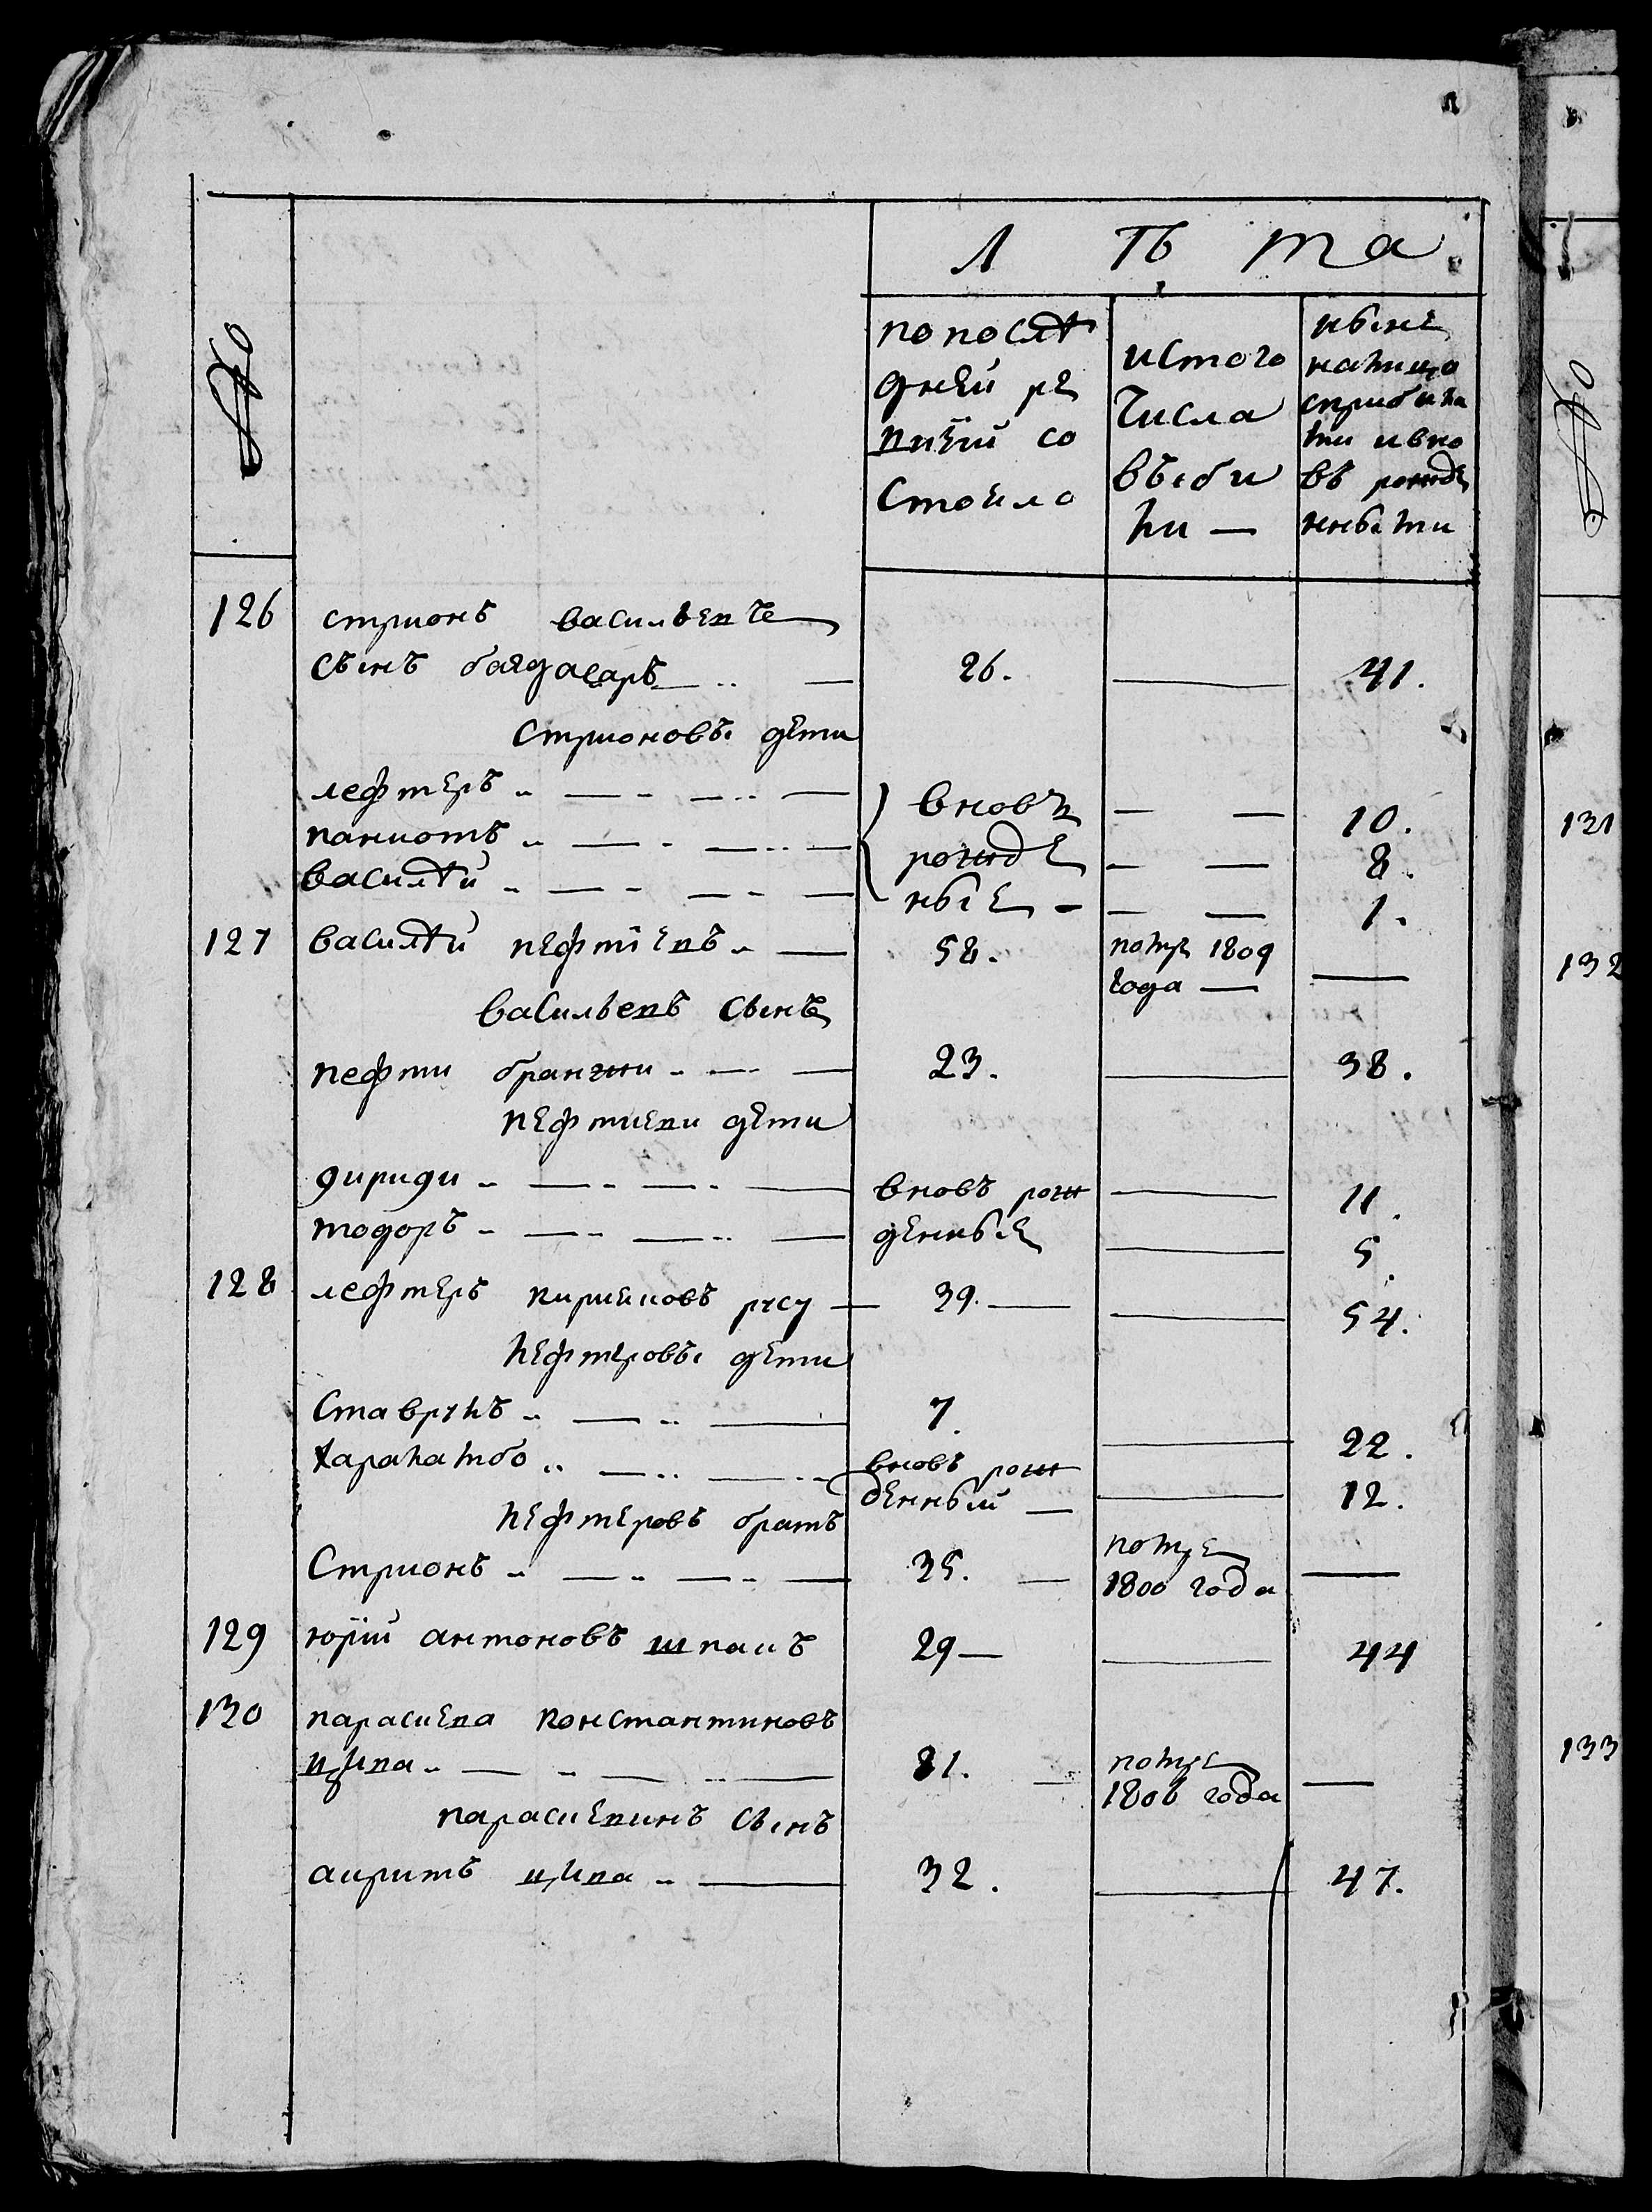 Л Ѣ та
№
по послѣ
дней ре
визiи со
стояло
ис того
числа
выбы
ли —
ныне
на лицо
с прибылы
ми и вно
въ рожде
нными
126 стрионъ васильевъ
сынъ балдасаръ — 26. — 41.
стрионовы дети
лефтеръ — вновь — — 10.
паниотъ — рожде — — 8.
василѣй — ные — — — 1.
127 василѣй кефтïевъ — 58. 1809
года — —
васильевъ сынъ
кефти бранжи — 23. — 38.
кефтиеви дети
дириди — вновъ рож — 11.
тодоръ — денные — 5.
128 лефтеръ кириаковъ русу — 39. — — 54.
лефтеровы дети
ставрулъ — 7. — 22.
харалампо — вновъ рож
денный — — 12.
лефтеровъ братъ
стрионъ — 35. —
1800 года —
129 юрïй антоновъ шпакъ 29 — — 44
130 параскева константиновъ
— 81. —
1808 года —
параскевинъ сынъ
кирикъ — 32. — 47.
№
131
132
133